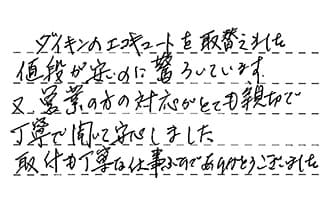 ダイキンのエコキュートを取替えました
値段が安いのに驚ろいています.
又、営業の方の対応がとても親切で
丁寧で聞いて安心しました
取付も丁寧な仕事でありがとうございました